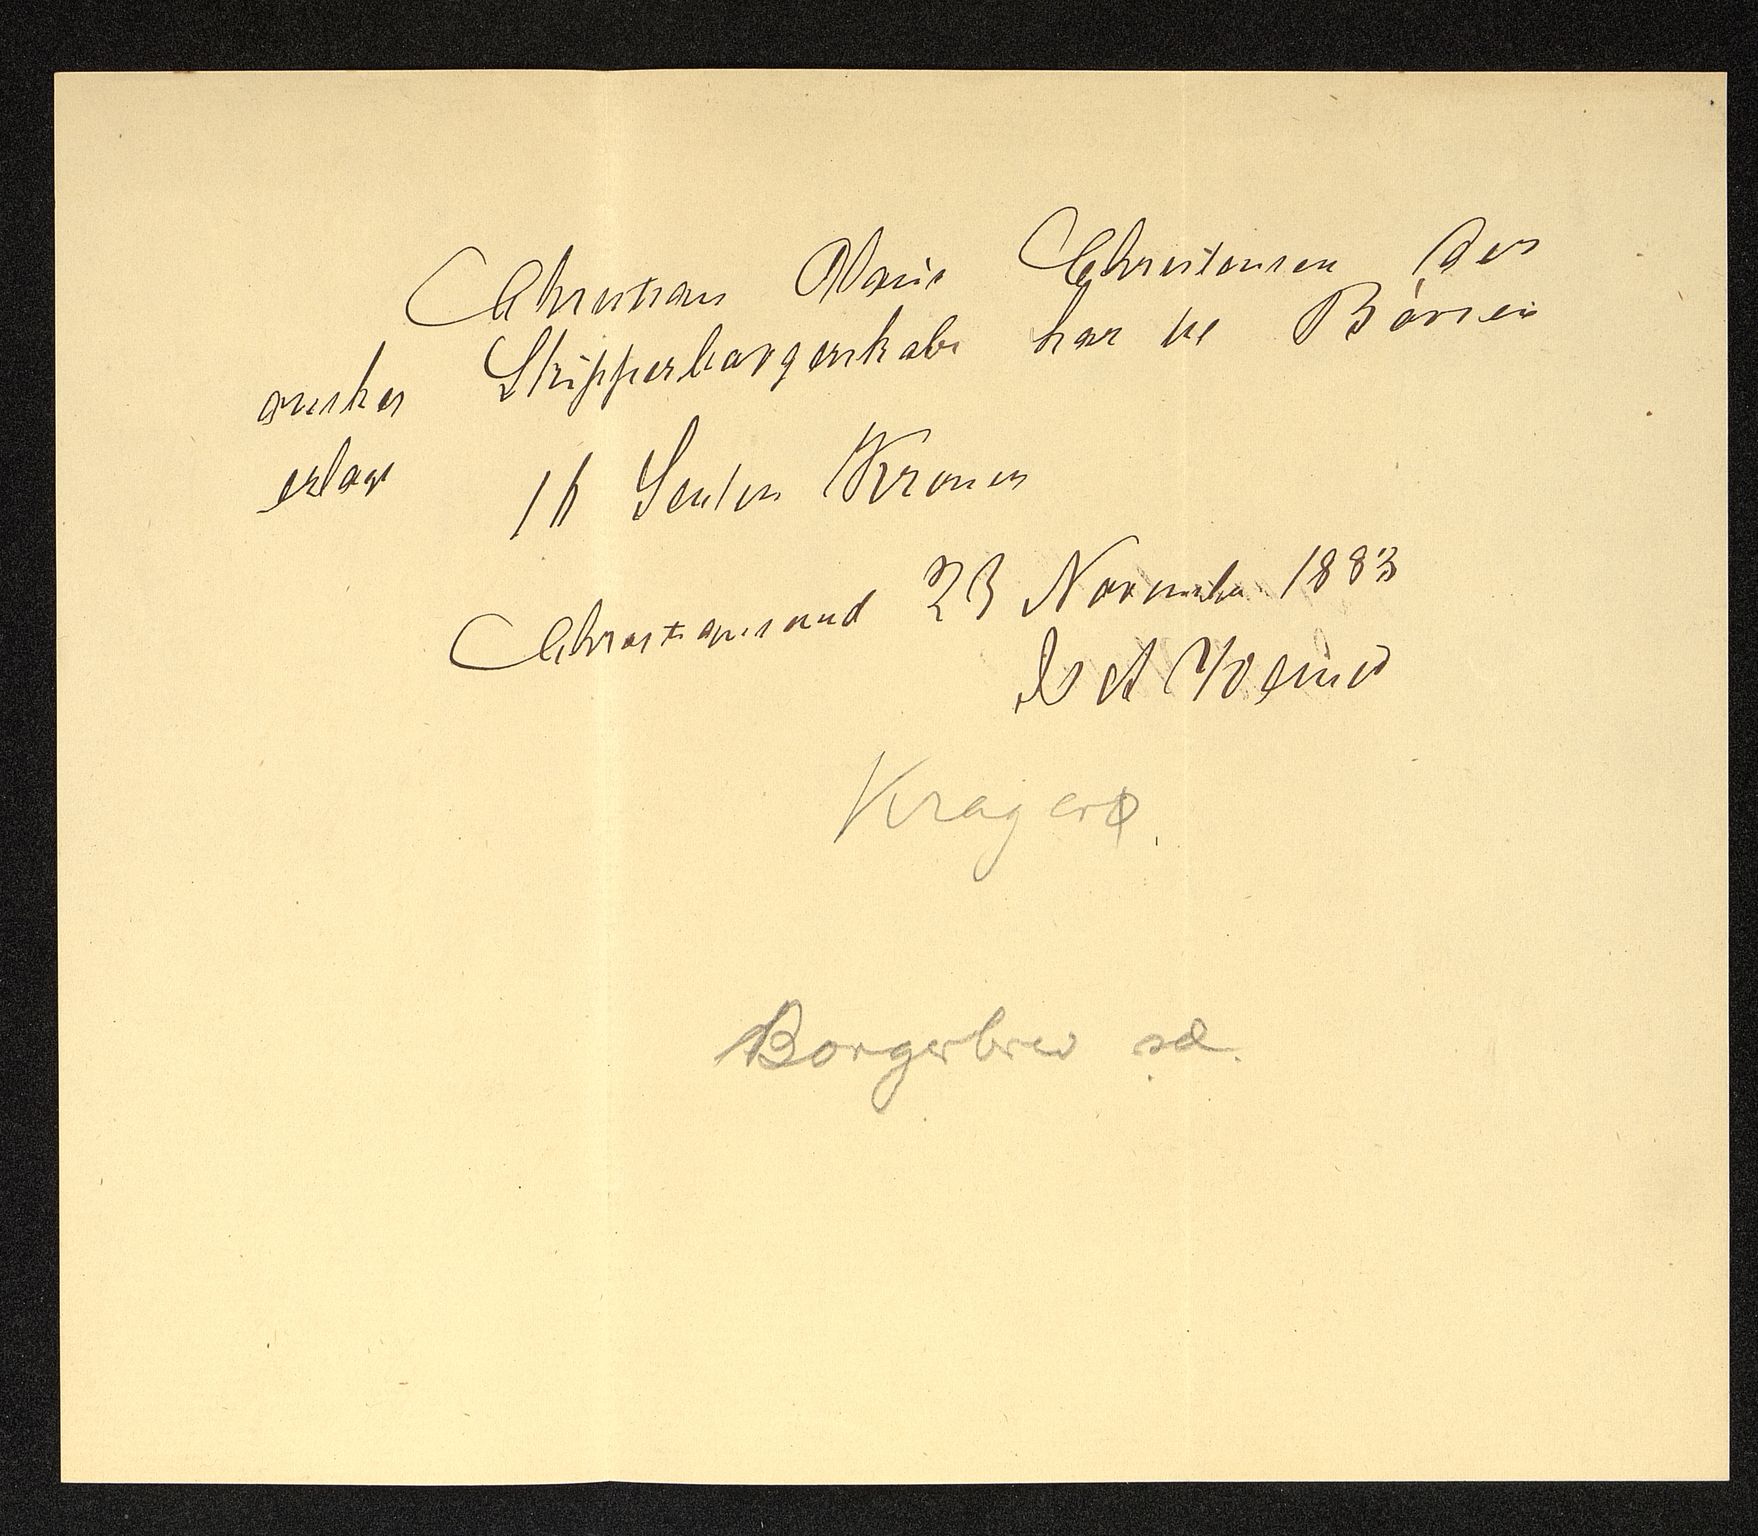 Christian Marie Christensen der
ønsker Skipperborgerskab har til Børsen
erlagt 16 Sexten Kroner
Christiansand 23 November 1883
Kragerø.
Borgerbrev